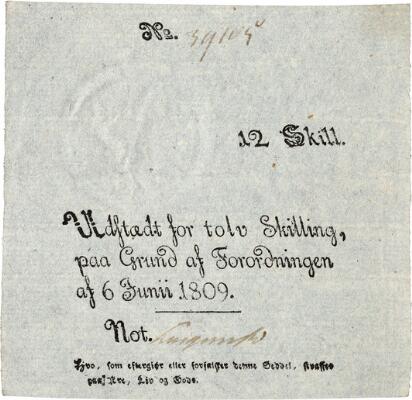 No. 39105
12 Skill.
Udstædt for tolv Skilling,
paa Grund af Forordningen
af 6 Junii 1809.
Not.
Hvo, som eftergiør eller forfalsker denne Seddel, straffes
paa Ære, Liv og Gods.